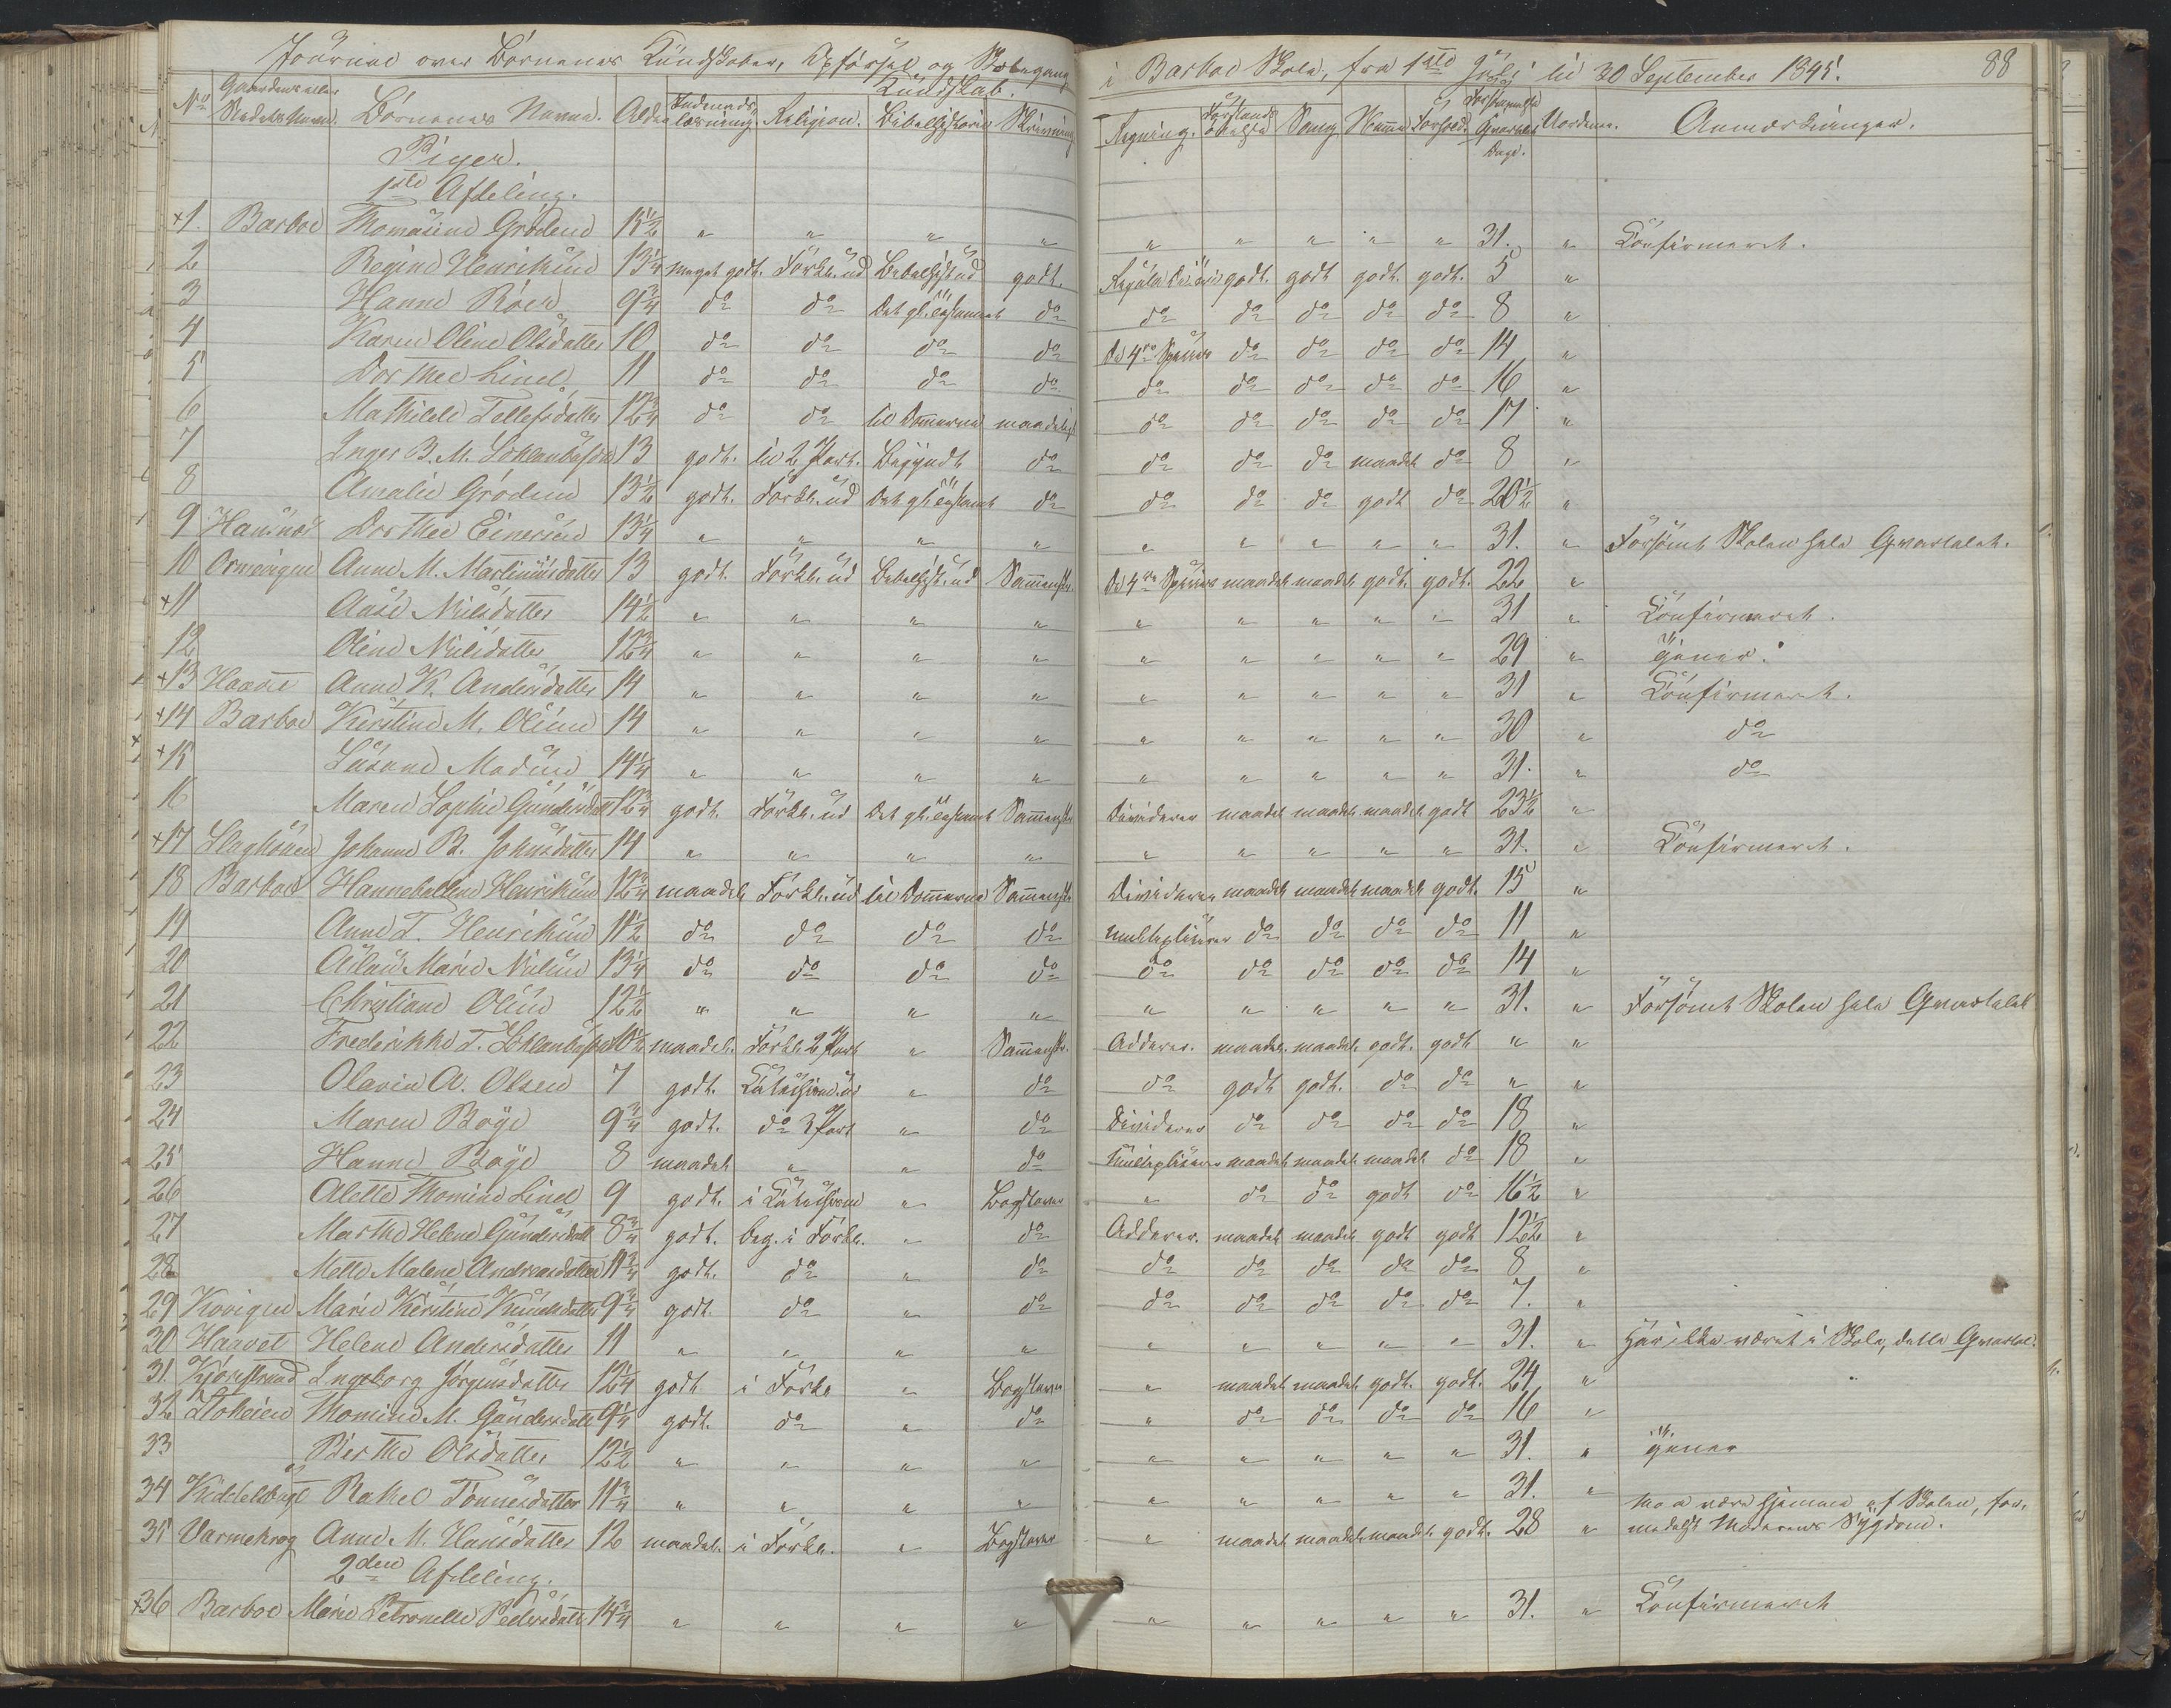 Journal over Børnenes Kundskaber, Opførsel og Skolegang i Barboe Skole, fra 1ste Juli til 30 September 1845. 88
No Gaardens eller Stedets Navn. Børnenes Navne. Alder Kundskab. Indenads-læsning. Religion. Bibelhistorie Skrivning Regning. Forstands øvelse Sang. Forhold. Forsømmelse Qvartalet Dage. Anmærkninger.
Piger.
1ste Afdeling.
+1. Barboe Thomasine Grødem 15½ " " " " " " " " " 31. " Confirmeret.
2 Regine Henriksen 13¼ meget godt. Forkl. ud Bibelhist ud godt. godt. godt godt. godt. 5 "
3 Hanne Roer 9¾ do do Det gl. Testament do do do do do do 8 "
4 Karen Oline Olsdatter 10 do do do do De 4re Species do do do do 14 "
5 Dorthee Lind 11 do do do do do do do do do 16 "
6 Mathilde Tellefsdatter 12¾ do do til Dommerne maadeligt do do do do do 17 "
7 Inger B. M. 13 godt. til 2 Part. Begyndt do do do do maadel. do 8 "
8 Amalie Grødem 13½ godt. Forkl. ud Det gl. Testamt do do do do godt do 20½ "
9 Dorthee Einersen 13¼ " " " " " " " " " 31. " Forsømt Skolen hele Qvartalet.
10 Anne M. Martiniusdatter 13 godt. Forkl. ud Bibelhist. ud Sammenskr. De 4re Species maadel. maadel. godt. godt. 22 "
+11 Aase Nilsdatter 14½ " " " " " " " " " 31 " Confirmeret.
12 Oline Nilsdatter 12¾ " " " " " " " " " 29 " tjener.
+13 Anne K. Andersdatter 14 " " " " " " " " " 31 " Confirmeret.
+14 Barboe Kirstine M. Olsen 14 " " " " " " " " " 30 " do
+15 Susane Madsen 14¼ " " " " " " " " " 31. " do
16 Maren Sophie Gundersdatt 12¾ godt. Forkl. ud Det gl. Testament Sammenskr. Dividerer maadel. maadel. maadel. godt 23½ "
+17 Johanne B. Johnsdatter 14 " " " " " " " " " 31. " Confirmeret.
18 Barboe Henriksen 12¾ maadel. Forkl. ud til Dommerne Sammenskr. Dividerer maadel. maadel. maadel. godt. 15 "
19 Anne T. Henriksen 11½ do do do do multiplicerer do do do do 11 "
20 Marie Nilsen 13¼ do do do do do do do do do 14 "
21 Christiane Olsen 12½ " " " " " " " " " 31. " Forsømt Skolen hele Qvartalet
22 Frederikke T. 10½ maadel. Forkl. 2 Part " Sammenskr. Adderer. maadel. maadel. godt. godt " "
23 Olavia A. Olsen 7 godt. Catechism. ud " do do godt godt. do do " "
24 Maren Bøye 9¾ godt. do 3 Part " do Dividerer do do do do 18 "
25 Hanne Bøye 8 maadel. " " do multiplicerer maadel. maadel. maadel. do 18 "
26 Alette Thomine Lind 9 godt. i Catechisme " Bogstaver " do do godt do 16½ "
27 Marthe Helene Gundersdatt 8¾ godt. beg. i Forkl. " do Adderer. maadel. maadel. godt godt 12½ "
28 Mette Malene Andreasdatter 11¾ godt. do " do do do do do do 8 "
29 Marie Kirstine Knudsdatter 9¾ godt. do " do do do do do do 7. "
30 Haavet Helene Andersdatter 11 " " " " " " " " " 31. " Har ikke været i Skole, dette Qvartal.
31. Ingeborg Jørgensdatter 12¼ godt i Forkl. " Bogstaver " maadel. maadel. godt. godt. 24 "
32 Stoheien Thomine M. Gundersdatt 9¼ godt. do " do " do do do do 16 "
33 Birthe Olsdatter 12½ " " " " " " " " " 31. " tjener
34 Rakel Tønnesdatter 11¾ " " " " " " " " " 31. "
35 Varmekrog Anne M. Hansdatter 12 maadel. i Forkl. " Bogstaver " maadel. maadel. maadel. godt. 28 " Maa være hjemme af Skolen, formedelst Moderens Sygdom.
2den Afdeling.
+36 Barboe Marie Petronelle Pedersdatt 14¾ " " " " " " " " " 31. " Confirmeret